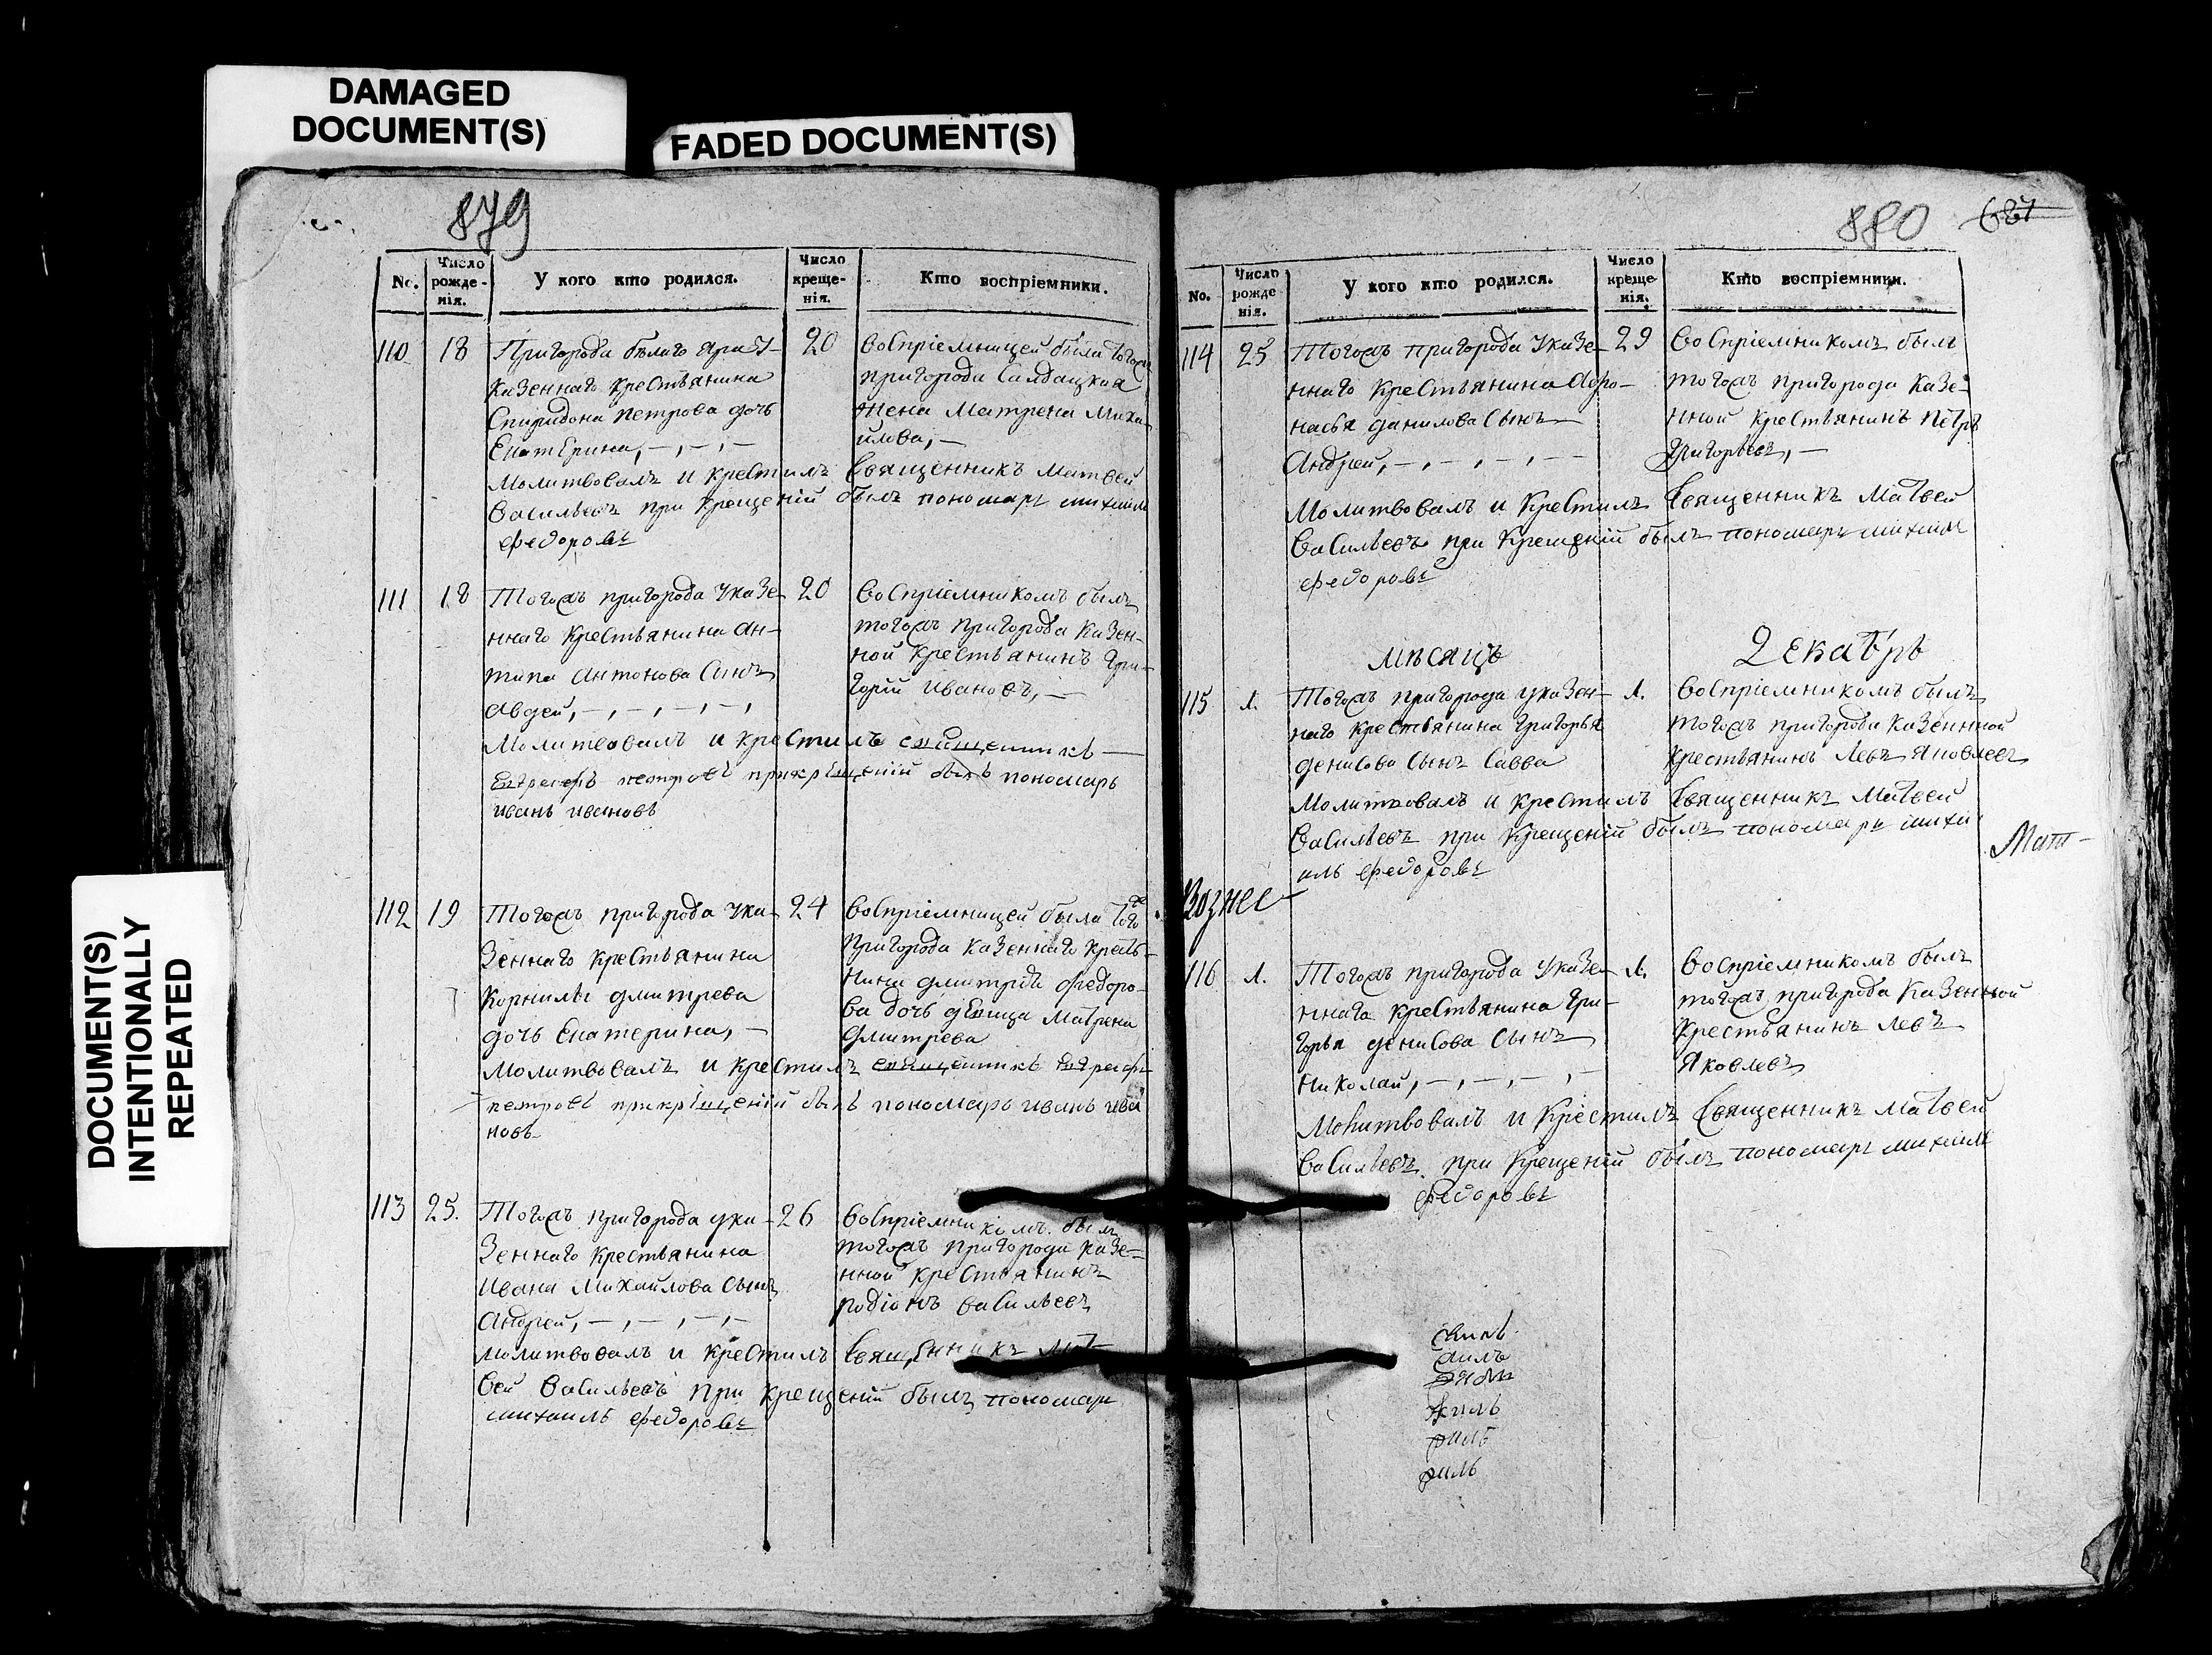 DAMAGED
DOCUMENT(S)
FADED DOCUMENT(S)
DOCUMENT(S)
INTENTIONALLY
REPEATED
879
No.
Число
рожде-
нія.
У кого кто родился.
Число
креще-
нія.
Кто воспріемники.
110
18
Пригорода белаго яра У
казеннаго крестьянина
Спиридона петрова дочь
Екатерина,
20
воспріемницей была тогожъ
пригорода Салдацкая
жена Матрена Миха-
илова,
Молитвовалъ и крестилъ Священникъ матвей
Васильевъ при крещеніи былъ пономарь михаил
федоровъ
111
18
Тогожъ пригорода Указе-
ннаго крестьянина Ан-
типа антонова Сынъ
Авдей,
20
воспріемникомъ былъ
тогожъ пригорода казен-
ной крестьянинъ Гри-
горій ивановъ,
Молитвовалъ и крестилъ священникъ
петровъ при крещеніи былъ пономарь
иванъ ивановъ
112
19
Тогожъ пригорода Ука-
зеннаго крестьянина
Корнилы дмитрева
дочь Екатерина,
24
воспріемницей была того
пригорода казеннаго кресть-
нина дмитрія федоро-
ва дочь девица матрена
дмитрева
Молитвовалъ и крестилъ священникъ
петровъ при крещеніи былъ пономарь иванъ ива
новъ
113
25.
Тогожъ пригорода ука-
зеннаго крестьянина
Ивана Михайлова Сынъ
Андрей,
26
воспріемникомъ былъ
тогожъ пригорода казе-
нной крестьянинъ
родіонъ васильевъ
молитвовалъ и крестилъ Священникъ мат
вей Васильевъ при крещеніи былъ пономарь
михаилъ федоровъ
880
687
No.
Число
рожде
нія.
У кого кто родился.
Число
креще-
нія.
Кто воспріемники.
114
25
Тогожъ пригорода Указе-
ннаго крестьянина Афо-
насья данилова Сынъ
Андрей,
29
воспріемникомъ былъ
тогожъ пригорода казе-
нной крестьянинъ петръ
Григорьевъ,
Молитвовалъ и крестилъ Священникъ матвей
Васильевъ при крещеніи былъ пономарь михаил
федоровъ
Мѣсяцъ
Декабрь
115
1.
Тогожъ пригорода указен-
наго крестьянина Григорья
денисова Сынъ Савва
1.
воспріемникомъ былъ
тогожъ пригорода казенной
крестьянинъ Левъ яковлевъ
Молитвовалъ и крестилъ Священникъ матвей
Васильевъ при крещеніи былъ пономарь михаи
илъ федоровъ
Мат-
Вознес-
116
1.
Тогожъ пригорода Указе-
ннаго крестьянина Гри-
горья денисова Сынъ
николай,
1.
воспріемникомъ былъ
тогожъ пригорода казенной
крестьянинъ Левъ
яковлевъ
Молитвовалъ и крестилъ Священникъ матвей
Васильевъ при крещеніи былъ пономарь михаил
федоровъ